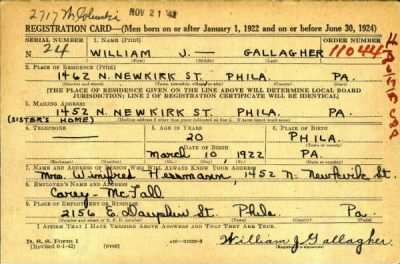 2717 N. Columbia NOV 21 '42
REGISTRATION CARD—(Men born on or after January 1, 1922 and on or before June 30, 1924)
SERIAL NUMBER 1. NAME (Print) ORDER NUMBER
N 24 WILLIAM J. — GALLAGHER 11044
(First) (Middle) (Last)
2. PLACE OF RESIDENCE (Print)
1462 N. NEWKIRK ST. PHILA. PA.
(Number and street) (Town, township, village, or city) (County) (State)
[THE PLACE OF RESIDENCE GIVEN ON THE LINE ABOVE WILL DETERMINE LOCAL BOARD
JURISDICTION; LINE 2 OF REGISTRATION CERTIFICATE WILL BE IDENTICAL]
3. MAILING ADDRESS
1452 N. NEWKIRK ST. PHILA. PA.
(SISTER'S HOME) [Mailing address if other than place indicated on line 2. If same insert word same]
4. TELEPHONE 5. AGE IN YEARS 6. PLACE OF BIRTH
20 PHILA.
DATE OF BIRTH (Town or county)
March 10 1922 PA.
(Exchange) (Number) (Mo.) (Day) (Yr.) (State or country)
7. NAME AND ADDRESS OF PERSON WHO WILL ALWAYS KNOW YOUR ADDRESS
Mrs. Winifred 1452 N. Newkirk St.
8. EMPLOYER'S NAME AND ADDRESS
Carey-McFall
9. PLACE OF EMPLOYMENT OR BUSINESS
2156 E. Dauphin St. Phila. Pa.
(Number and street or R. F. D. number) (Town) (County) (State)
I AFFIRM THAT I HAVE VERIFIED ABOVE ANSWERS AND THAT THEY ARE TRUE.
D. S. S. Form 1
(Revised 6-1-42) (over) William J. Gallagher